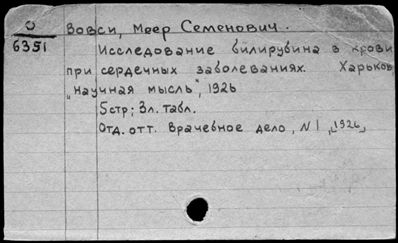 О
6351
Вовси, Меер Семенович.
Исследование билирубина в крови
при сердечных заболеваниях. Харьков,
„Научная мысль", 1926
5стр; 3л. табл.
Отд. отт. Врачебное дело, N1, 1926